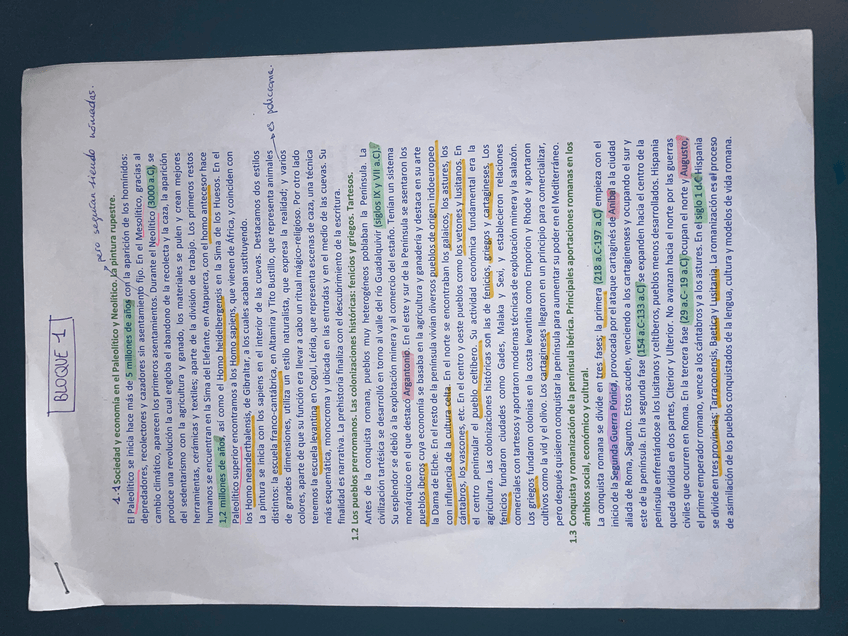 BLOQUE 1
pero seguían siendo nómadas.
1.1 Sociedad y economía en el Paleolítico y Neolítico. La pintura rupestre.
El Paleolítico se inicia hace más de 5 millones de años con la aparición de los homínidos:
depredadores, recolectores y cazadores sin asentamiento fijo. En el Mesolítico, gracias al
cambio climático, aparecen los primeros asentamientos. Durante el Neolítico (3000 a.C), se
produce una revolución la cual engloba el abandono de la recolecta y la caza, la aparición
del sedentarismo con la agricultura y ganado, los materiales se pulen y crean mejores
herramientas, cerámicas y textiles; aparte de la división de trabajo. Los primeros restos
humanos se encuentran en la Sima del Elefante, en Atapuerca, con el homo antecesor hace
1,2 millones de años, así como el Homo heidelbergensis en la Sima de los Huesos. En el
Paleolítico superior encontramos a los Homo sapiens, que vienen de África, y coinciden con
los Homo neanderthalensis, de Gibraltar, a los cuales acaban sustituyendo.
La pintura se inicia con los sapiens en el interior de las cuevas. Destacamos dos estilos
distintos: la escuela franco-cantábrica, en Altamira y Tito Bustillo, que representa animales → es policroma.
de grandes dimensiones, utiliza un estilo naturalista, que expresa la realidad; y varios
colores, aparte de que su función era llevar a cabo un ritual mágico-religioso. Por otro lado
tenemos la escuela levantina en Cogul, Lérida, que representa escenas de caza, una técnica
más esquemática, monocroma y ubicada en las entradas y en el medio de las cuevas. Su
finalidad es narrativa. La prehistoria finaliza con el descubrimiento de la escritura.
1.2 Los pueblos prerromanos. Las colonizaciones históricas: fenicios y griegos. Tartesos.
Antes de la conquista romana, pueblos muy heterogéneos poblaban la Península. La
civilización tartésica se desarrolló en torno al valle del río Guadalquivir (siglos IX y VII a.C).
Su esplendor se debió a la explotación minera y al comercio del estaño. Tenían un sistema
monárquico en el que destacó Argantonio. En el este y sur de la Península se asentaron los
pueblos íberos cuya economía se basaba en la agricultura y ganadería y destaca en su arte
la Dama de Elche. En el resto de la península vivían diversos pueblos de origen indoeuropeo
con influencia de la cultura celta. En el norte se encontraban los galaicos, los astures, los
cántabros, los vascones, etc. En el centro y oeste pueblos como los vetones y lusitanos. En
el centro peninsular el pueblo celtíbero. Su actividad económica fundamental era la
agricultura. Las colonizaciones históricas son las de fenicios, griegos y cartagineses. Los
fenicios fundaron ciudades como Gades, Malaka y Sexi, y establecieron relaciones
comerciales con tartesos y aportaron modernas técnicas de explotación minera y la salazón.
Los griegos fundaron colonias en la costa levantina como Emporion y Rhode y aportaron
cultivos como la vid y el olivo. Los cartagineses llegaron en un principio para comercializar,
pero después quisieron conquistar la península para aumentar su poder en el Mediterráneo.
1.3 Conquista y romanización de la península Ibérica. Principales aportaciones romanas en los
ámbitos social, económico y cultural.
La conquista romana se divide en tres fases; la primera (218 a.C-197 a.C) empieza con el
inicio de la Segunda Guerra Púnica, provocada por el ataque cartaginés de Aníbal a la ciudad
aliada de Roma, Sagunto. Estos acuden, venciendo a los cartaginenses y ocupando el sur y
este de la península. En la segunda fase (154 a.C-133 a.C) se expanden hacia el centro de la
península enfrentándose a los lusitanos y celtíberos, pueblos menos desarrollados. Hispania
queda dividida en dos partes, Citerior y Ulterior. No avanzan hacia el norte por las guerras
civiles que ocurren en Roma. En la tercera fase (29 a.C- 19 a.C) ocupan el norte y Augusto,
el primer emperador romano, vence a los cántabros y a los astures. En el siglo 1 d.C Hispania
se divide en tres provincias: Tarraconensis, Baetica y Lusitania. La romanización es el proceso
de asimilación de los pueblos conquistados de la lengua, cultura y modelos de vida romana.